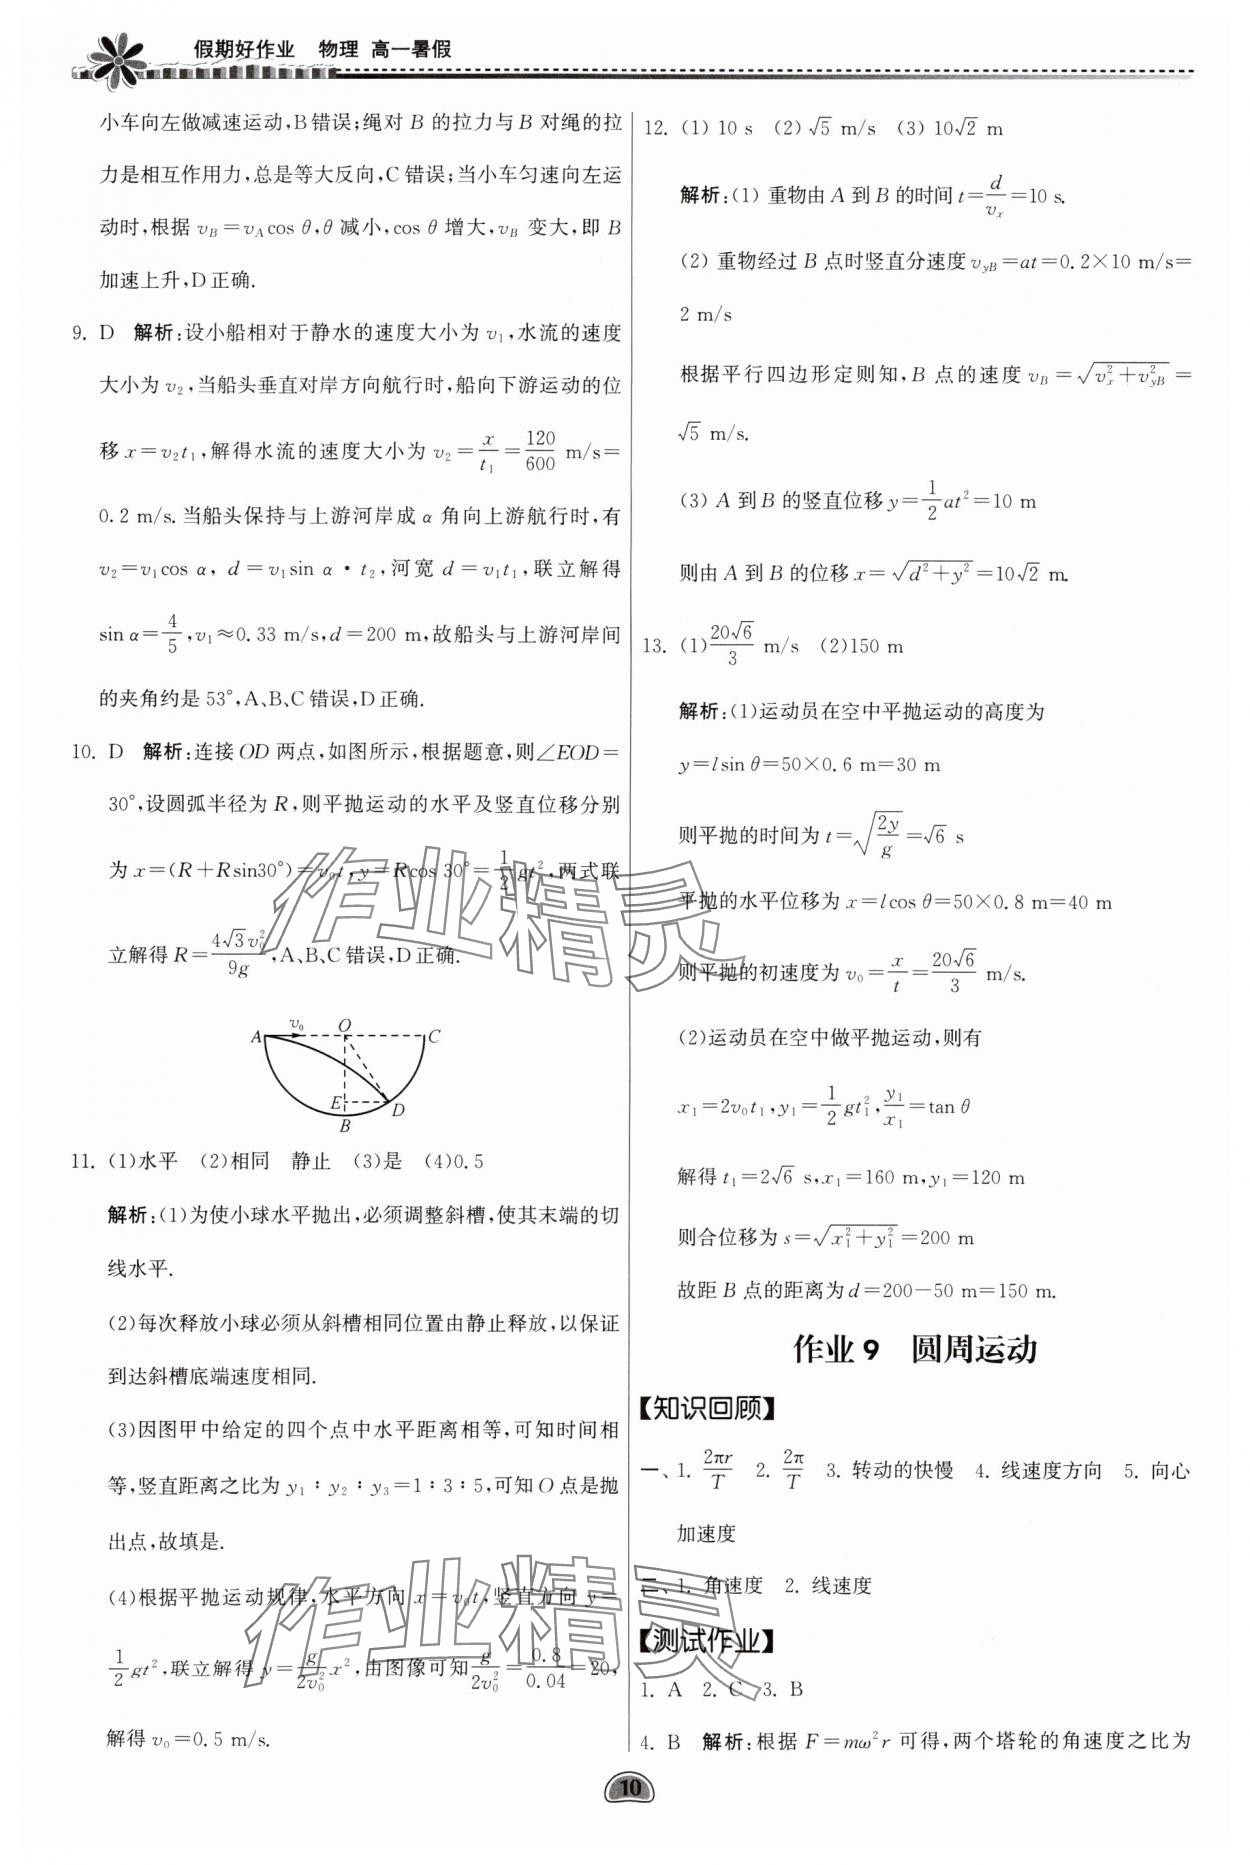 假期好作业　物理　高一暑假
小车向左做减速运动,B错误;绳对 B 的拉力与B 对绳的拉
力是相互作用力,总是等大反向,C错误;当小车匀速向左运
动时,根据 v_B=v_A cos θ,θ 减小,cos θ 增大,v_B 变大,即 B
加速上升,D正确.
9. D　解析:设小船相对于静水的速度大小为 v₁,水流的速度
大小为 v₂,当船头垂直对岸方向航行时,船向下游运动的位
移 x=v₂t₁,解得水流的速度大小为 v₂=x/t₁=120/600 m/s=
0.2 m/s.当船头保持与上游河岸成 α 角向上游航行时,有
v₂=v₁cos α, d=v₁sin α·t₂,河宽 d=v₁t₁,联立解得
sin α=4/5,v₁≈0.33 m/s,d=200 m,故船头与上游河岸间
的夹角约是 53°,A、B、C错误,D正确.
10. D　解析:连接 OD 两点,如图所示,根据题意,则∠EOD=
30°,设圆弧半径为 R,则平抛运动的水平及竖直位移分别
为 x=(R+Rsin30°)=v₀t,y=Rcos 30°=1/2 gt²,两式联
立解得 R=4√3v₀²/9g,A、B、C错误,D正确.
A v₀ O C
E D
B
11. (1)水平　(2)相同　静止　(3)是　(4)0.5
解析:(1)为使小球水平抛出,必须调整斜槽,使其末端的切
线水平.
(2)每次释放小球必须从斜槽相同位置由静止释放,以保证
到达斜槽底端速度相同.
(3)因图甲中给定的四个点中水平距离相等,可知时间相
等,竖直距离之比为 y₁:y₂:y₃=1:3:5,可知O点是抛
出点,故填是.
(4)根据平抛运动规律,水平方向 x=v₀t,竖直方向 y=
1/2 gt²,联立解得 y=g/2v₀² x²,由图像可知 g/2v₀²=0.8/0.04=20,
解得 v₀=0.5 m/s.
12. (1) 10 s　(2) √5 m/s　(3) 10√2 m
解析:(1) 重物由 A 到 B 的时间 t=d/vₓ=10 s.
(2) 重物经过 B 点时竖直分速度 v_yB=at=0.2×10 m/s=
2 m/s
根据平行四边形定则知,B 点的速度 v_B=√(vₓ²+v_yB²)=
√5 m/s.
(3) A 到 B 的竖直位移 y=1/2 at²=10 m
则由 A 到 B 的位移 x=√(d²+y²)=10√2 m.
13. (1)20√6/3 m/s　(2)150 m
解析:(1)运动员在空中平抛运动的高度为
y=lsin θ=50×0.6 m=30 m
则平抛的时间为 t=√(2y/g)=√6 s
平抛的水平位移为 x=lcos θ=50×0.8 m=40 m
则平抛的初速度为 v₀=x/t=20√6/3 m/s.
(2)运动员在空中做平抛运动,则有
x₁=2v₀t₁,y₁=1/2 gt₁²,y₁/x₁=tan θ
解得 t₁=2√6 s,x₁=160 m,y₁=120 m
则合位移为 s=√(x₁²+y₁²)=200 m
故距 B 点的距离为 d=200-50 m=150 m.
作业 9　圆周运动
【知识回顾】
一、1. 2πr/T　2. 2π/T　3. 转动的快慢　4. 线速度方向　5. 向心
加速度
二、1. 角速度　2. 线速度
【测试作业】
1. A　2. C　3. B
4. B　解析:根据 F=mω²r 可得,两个塔轮的角速度之比为
10
作业精灵
作业精灵